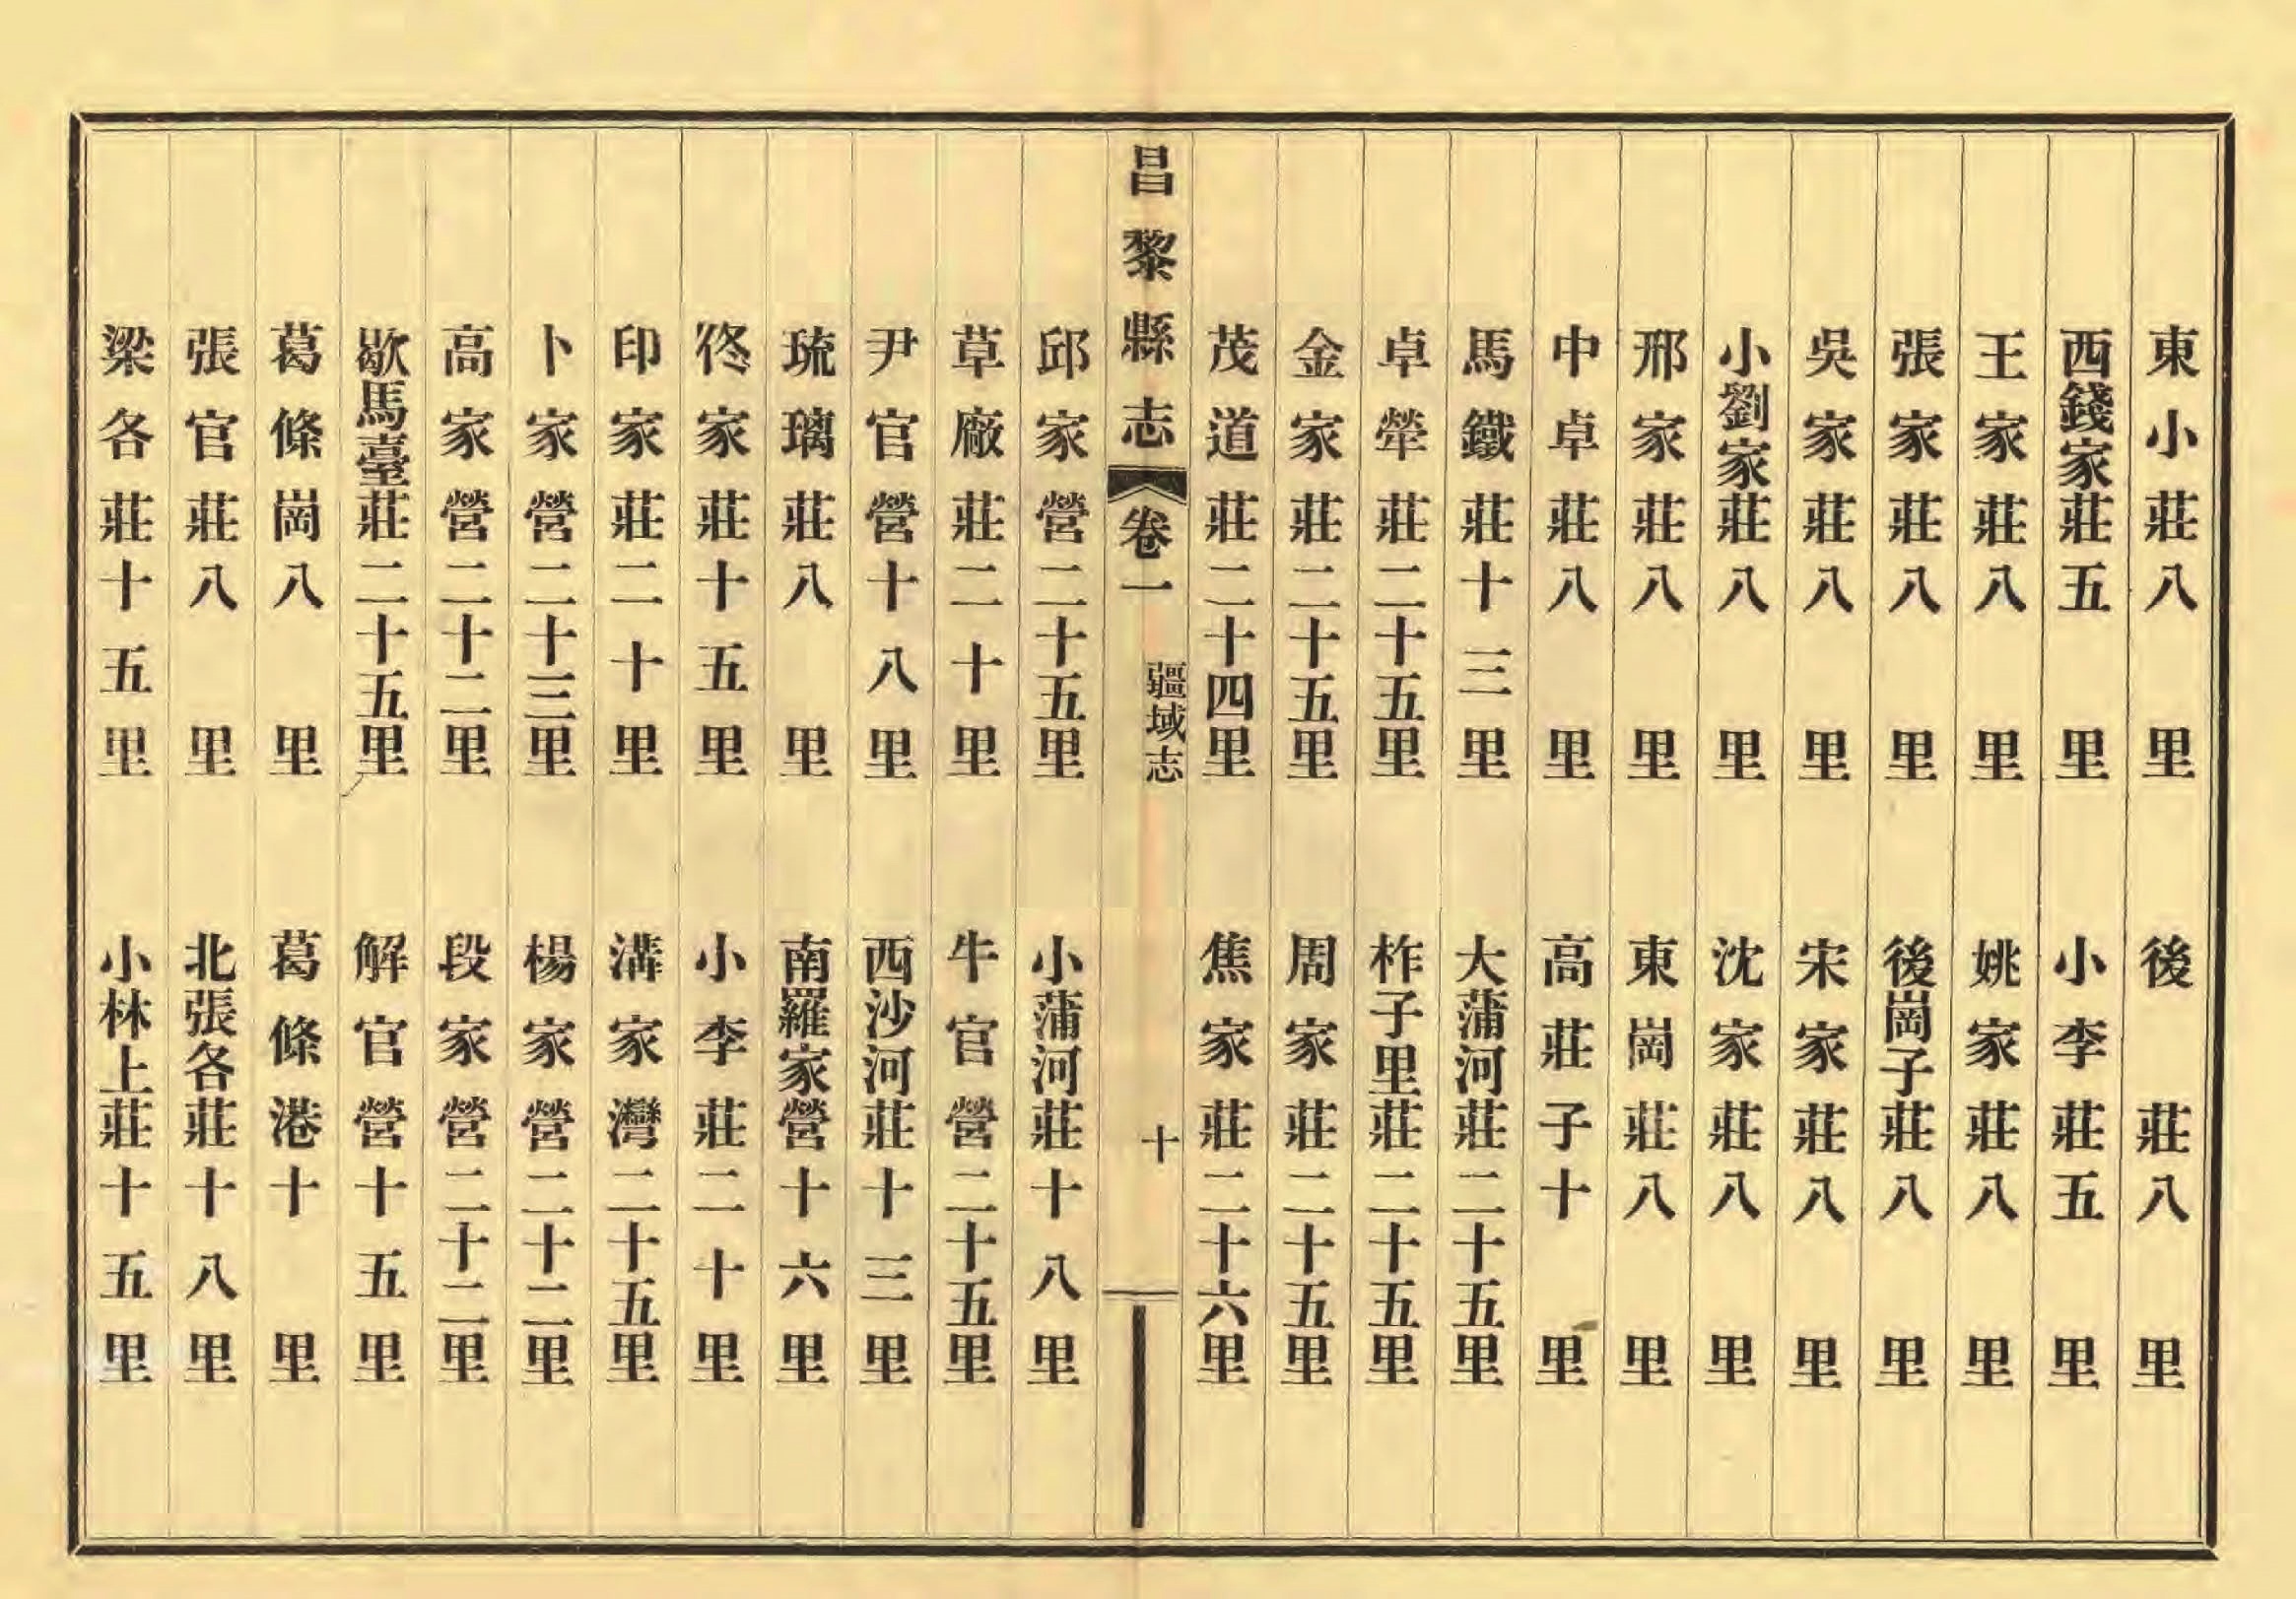 東小莊八里　後莊八里
西錢家莊五里　小李莊五里
王家莊八里　姚家莊八里
張家莊八里　後崗子莊八里
吳家莊八里　宋家莊八里
小劉家莊八里　沈家莊八里
邢家莊八里　東崗莊八里
中卓莊八里　高莊子十里
馬鐵莊十三里　大蒲河莊二十五里
卓犖莊二十五里　柞子里莊二十五里
金家莊二十五里　周家莊二十五里
茂道莊二十四里　焦家莊二十六里
昌黎縣志　卷一　疆域志　十
邱家營二十五里　小蒲河莊十八里
草廠莊二十里　牛官營二十五里
尹官營十八里　西沙河莊十三里
琉璃莊八里　南羅家營十六里
佟家莊十五里　小李莊二十里
印家莊二十里　溝家灣二十五里
卜家營二十三里　楊家營二十二里
高家營二十二里　段家營二十二里
歇馬臺莊二十五里　解官營十五里
葛條崗八里　葛條港十里
張官莊八里　北張各莊十八里
梁各莊十五里　小林上莊十五里